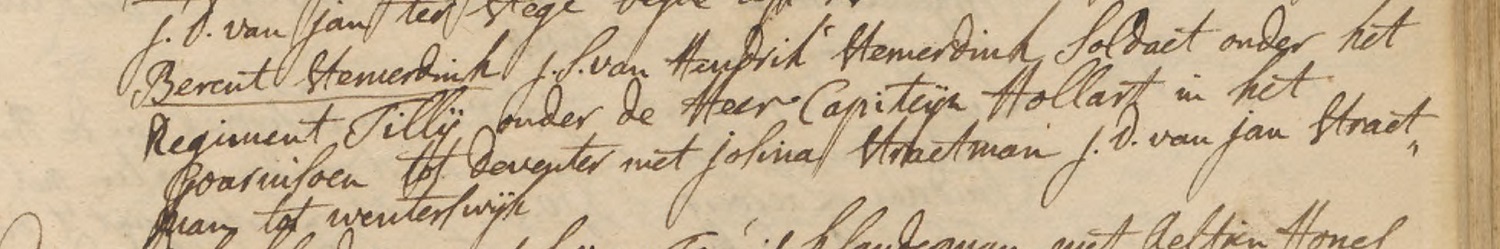 J. D. van Jan ter Stege
Berent Stemerdink J. S. van Hendrik Stemerdink Soldaet onder het
Regiment Tillij onder de Heer Capiteijn Hollart in het
Guarnisoen tot Deventer met Josina Straetman J. D. van Jan Straet„
man tot wenterswijk
met Aeltien